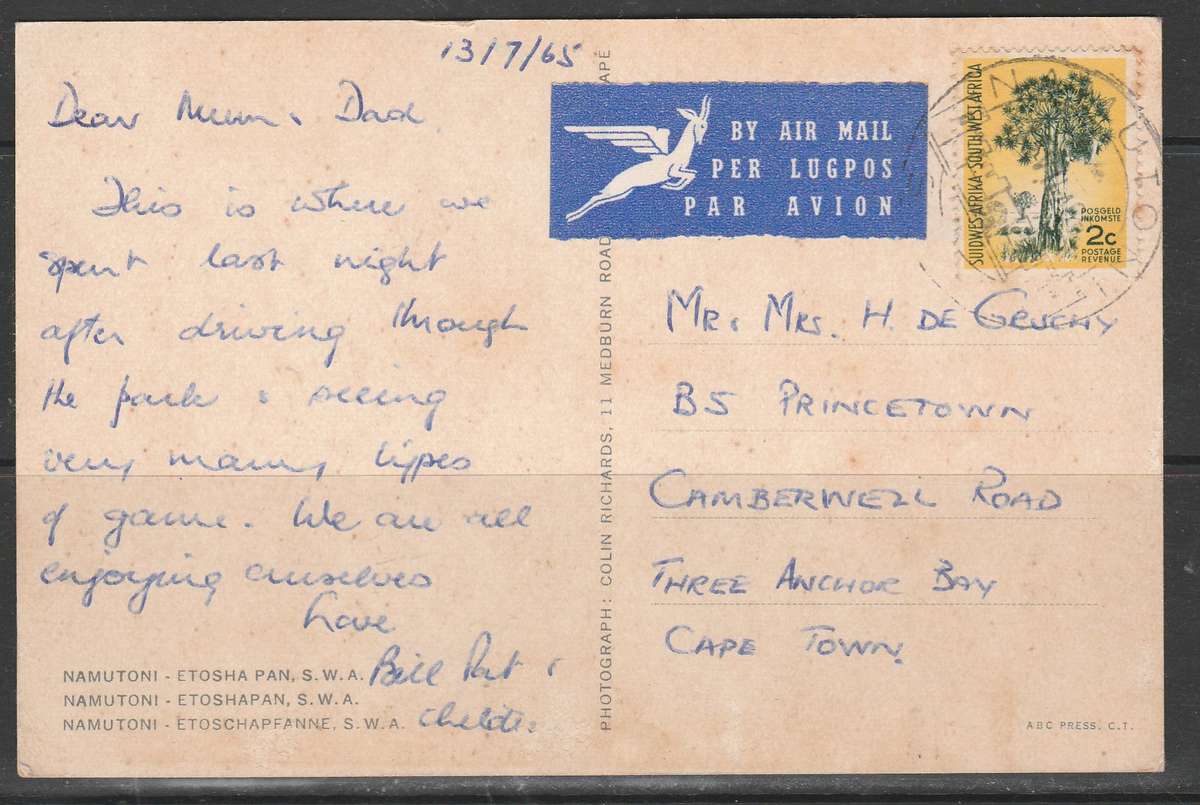 13/7/65
Dear Mum & Dad
This is where we
spent last night
after driving through
the park & seeing
very many types
of game. We are all
enjoying ourselves
Love
Bill Pat &
NAMUTONI - ETOSHA PAN, S.W.A.
NAMUTONI - ETOSHAPAN, S.W.A.
NAMUTONI - ETOSCHAPFANNE, S.W.A.
PHOTOGRAPH: COLIN RICHARDS, 11 MEDBURN ROAD
APE
BY AIR MAIL
PER LUGPOS
PAR AVION
SUIDWES AFRIKA · SOUTH WEST AFRICA
POSGELD
INKOMSTE
2c
POSTAGE
REVENUE
NAMUTONI
MR & MRS. H. DE GRUCHY
B5 PRINCETOWN
CAMBERWELL ROAD
THREE ANCHOR BAY
CAPE TOWN.
ABC PRESS. C.T.